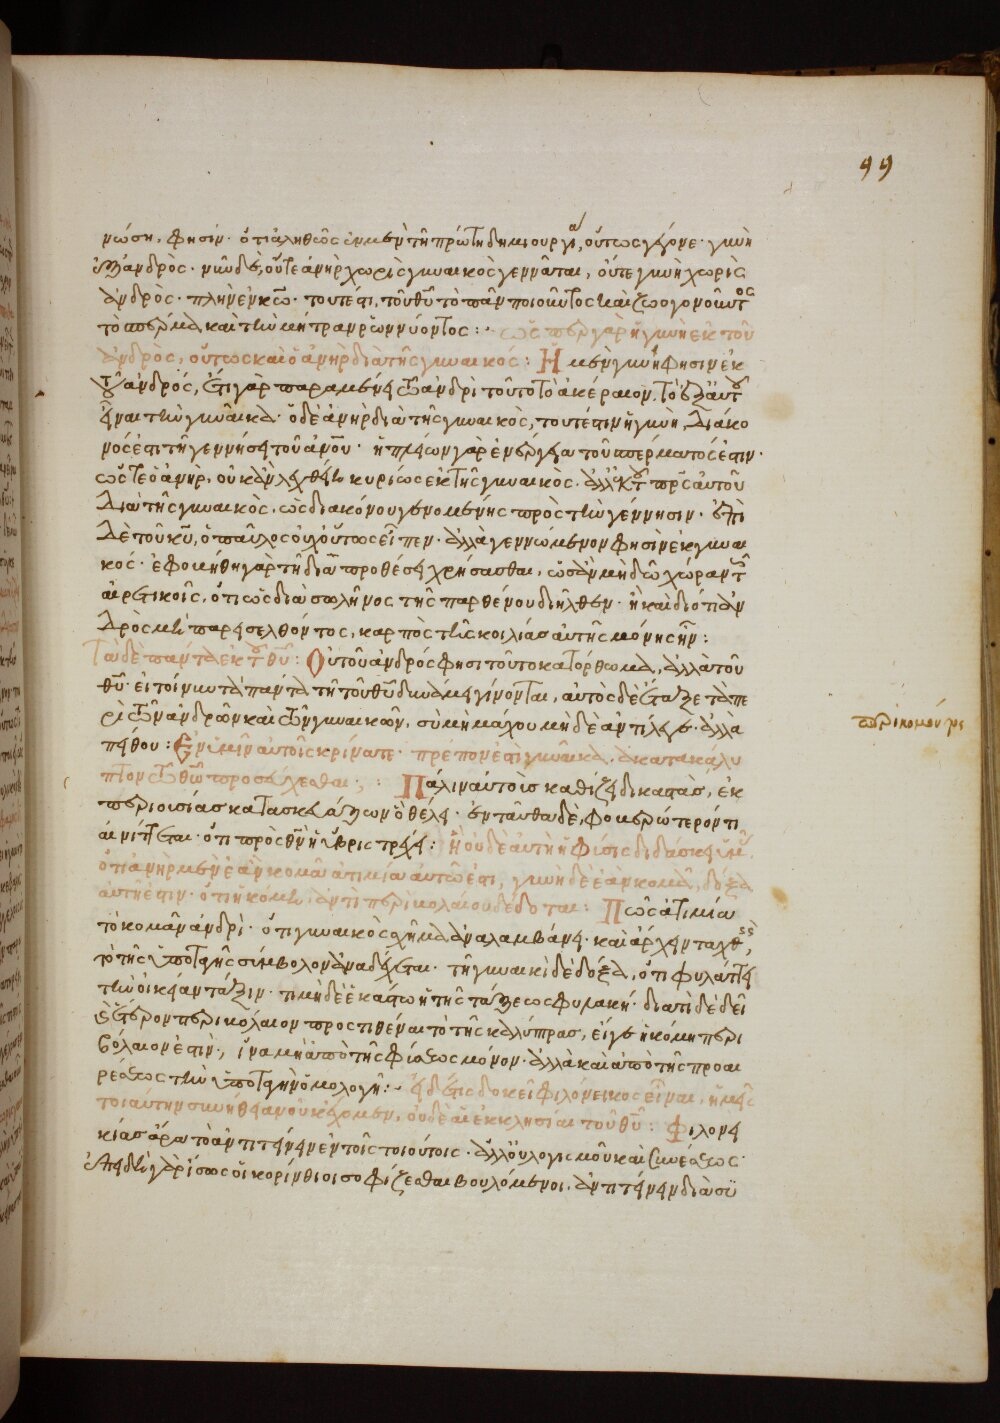 99
νώση, φησίν· ὅτι ἀληθῶς ἐν μὲν τῇ πρώτῃ δημιουργίᾳ, οὕτως γέγονε· γυνὴ
ἐξ ἀνδρός· νῦν δὲ, οὔτε ἀνὴρ χωρὶς γυναικὸς γεννᾶται, οὔτε γυνὴ χωρὶς
ἀνδρός· πλὴν ἐν κῶ· τουτέστι, τοῦ θῦ τὸ πᾶν ποιοῦντος καὶ ζωογονοῦντος
τὸ σπέρμα καὶ τὴν μήτραν ῥωννύοντος: ὥσπερ γὰρ ἡ γυνὴ ἐκ τοῦ
ἀνδρὸς, οὕτως καὶ ὁ ἀνὴρ διὰ τῆς γυναικός: Ἡ μὲν γυνὴ φησιν ἐκ
τοῦ ἀνδρός, ἔτι γὰρ παραμένει τῶ ἀνδρὶ τοῦτο τὸ ἀκέραιον, τὸ ἐξ αὐτοῦ
εἶναι τὴν γυναῖκα· ὁ δὲ ἀνὴρ διὰ τῆς γυναικὸς, τουτέστιν ἡ γυνὴ, διάκο
νός ἐστι τῇ γεννήσει τοῦ ἀνου· ἡ πλείων γὰρ ἐνέργεια τοῦ σπέρματός ἐστιν·
ὥστε ὁ ἀνὴρ, οὐκ ἂν λεχθείη κυρίως ἐκ τῆς γυναικὸς· ἀλλ' ἐκ τοῦ πρς αὐτοῦ
διὰ τῆς γυναικὸς, ὡς διακόνου γενομένης πρὸς τὴν γέννησιν· ἐπὶ
δὲ τοῦ κῦ, ὁ παῦλος οὐχ οὕτως εἶπεν· ἀλλὰ γεννώμενον φησὶν ἐκ γυναι
κός· ἐφοβήθη γὰρ τῇ διὰ προθέσει χρήσασθαι, ὡς ἂν μὴ δῶ χώραν τοῖς
αἱρετικοῖς, ὅτι ὡς διὰ σωλῆνος τῆς παρθένου διῆλθεν· ἢ καὶ διότι ἀν
δρὸς μὴ παρεισελθόντος, καρπὸς τῆς κοιλίας αὐτῆς μόνης ἦν:
Τὰ δὲ πάντα ἐκ τοῦ θῦ: Οὐ τοῦ ἀνδρός φησι τοῦτο κατόρθωμα, ἀλλὰ τοῦ
θῦ· εἰ τοίνυν τὰ πάντα τῇ τοῦ θῦ δυνάμει γίνονται, αὐτὸς δὲ ἔταξε τὰ πε
ρὶ τῶν ἀνδρῶν καὶ τῶν γυναικῶν, σὺ μὴ μάχου μηδὲ ἀντίλεγε· ἀλλὰ
πείθου: Ἐν ὑμῖν αὐτοῖς κρίνατε· πρέπον ἐστὶ γυναῖκα ἀκατακάλυ
πτον τῶ θῶ προσεύχεσθαι; Πάλιν αὐτοὺς καθίζει δικαστὰς, ἐκ
περιουσίας κατασκευάζων ὃ θέλει· ἐνταῦθα δὲ, φοβερώτερόν τι
αἰνίττεται· ὅτι πρὸς θν ἡ ὕβρις τρέχει: Ἢ οὐδὲ αὐτὴ ἡ φύσις διδάσκει ὑμᾶς
ὅτι ἀνὴρ μὲν ἐὰν κομᾶ ἀτιμία αὐτῶ ἐστι, γυνὴ δὲ ἐὰν κομᾶ, δόξα
αὐτῇ ἐστιν· ὅτι ἡ κόμη ἀντὶ περιβολαίου δέδοται: Πῶς ἀτιμία
τὸ κομᾶν ἀνδρὶ· ὅτι γυναικὸς σχῆμα ἀναλαμβάνει· καὶ ἄρχειν ταχθεὶς,
τὸ τῆς ὑποταγῆς σύμβολον ἀναδέχεται· τῇ γυναικὶ δὲ δόξα, ὅτι φυλάττει
τὴν οἰκείαν τάξιν· τιμὴ δὲ ἑκάστω ἡ τῆς τάξεως φυλακή· διατί δὲ δεῖ
ἕτερον περιβόλαιον προστιθέναι τὸ τῆς καλύπτρας, εἴγε ἡ κόμη περι
βόλαιον ἐστίν; ἵνα μὴ ἀπὸ τῆς φύσεως μόνον· ἀλλὰ καὶ ἀπὸ τῆς προαι
ρέσεως τὴν ὑποταγὴν ὁμολογῇ: Εἰ δέ τις δοκεῖ φιλόνεικος εἶναι, ἡμεῖς
τοιαύτην συνήθειαν οὐκ ἔχομεν, οὐδὲ αἱ ἐκκλησίαι τοῦ θῦ: Φιλονει
κίας ἄρα τὸ ἀντιτείνειν ἐν τοῖς τοιούτοις· ἀλλ' οὐ λογισμοῦ καὶ συνέσεως·
ἐπειδὴ γὰρ ἴσως οἱ κορίνθιοι σοφίζεσθαι βουλόμενοι, ἀντιτείνειν διὰ συ